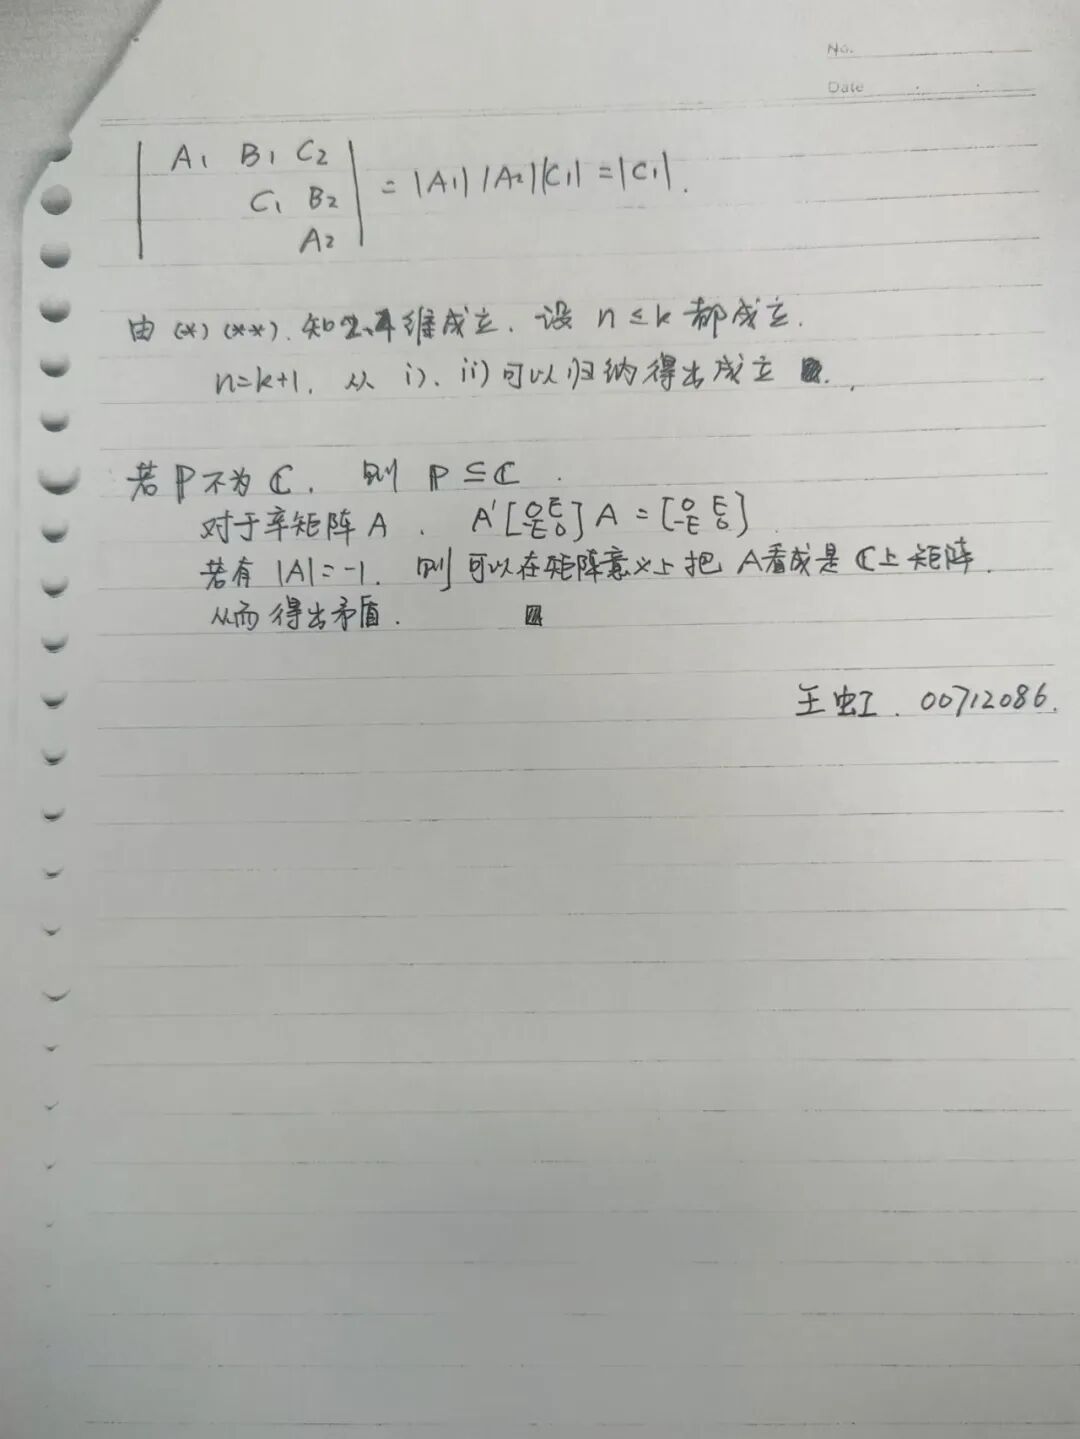 No.
Date
| A₁ B₁ C₂ |
| C₁ B₂ | = |A₁| |A₂||C₁| = |C₁|.
| A₂ |
由 (*) (**). 知2、4维成立. 设 n ≤ k 都成立.
n=k+1. 从 i)、ii) 可以归纳得出成立
若 ℙ 不为 ℂ. 则 ℙ ⊆ ℂ.
对于辛矩阵 A. A' [O E; -E O] A = [O E; -E O]
若有 |A|=-1. 则可以在矩阵意义上把 A看成是 ℂ上矩阵.
从而得出矛盾.
王虹. 00712086.